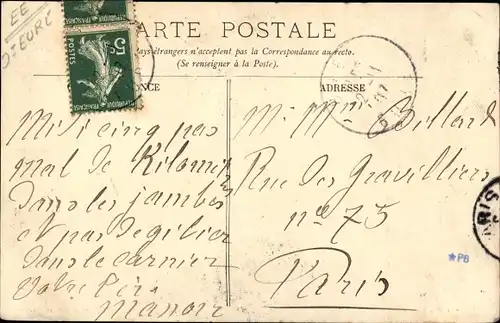 EE
CARTE POSTALE
pays étrangers n'acceptent pas la Correspondance au recto.
(Se renseigner à la Poste).
ONCE
ADRESSE
5c
POSTES
RÉPUBLIQUE FRANÇAISE
Midi cinq pas
mal de Kilomet
dans les jambes
et pas de gibier
dans le carnier
Votre Père
Manoir
M. Mme Billard
Rue des Gravilliers
no 75
Paris
PARIS
*PB